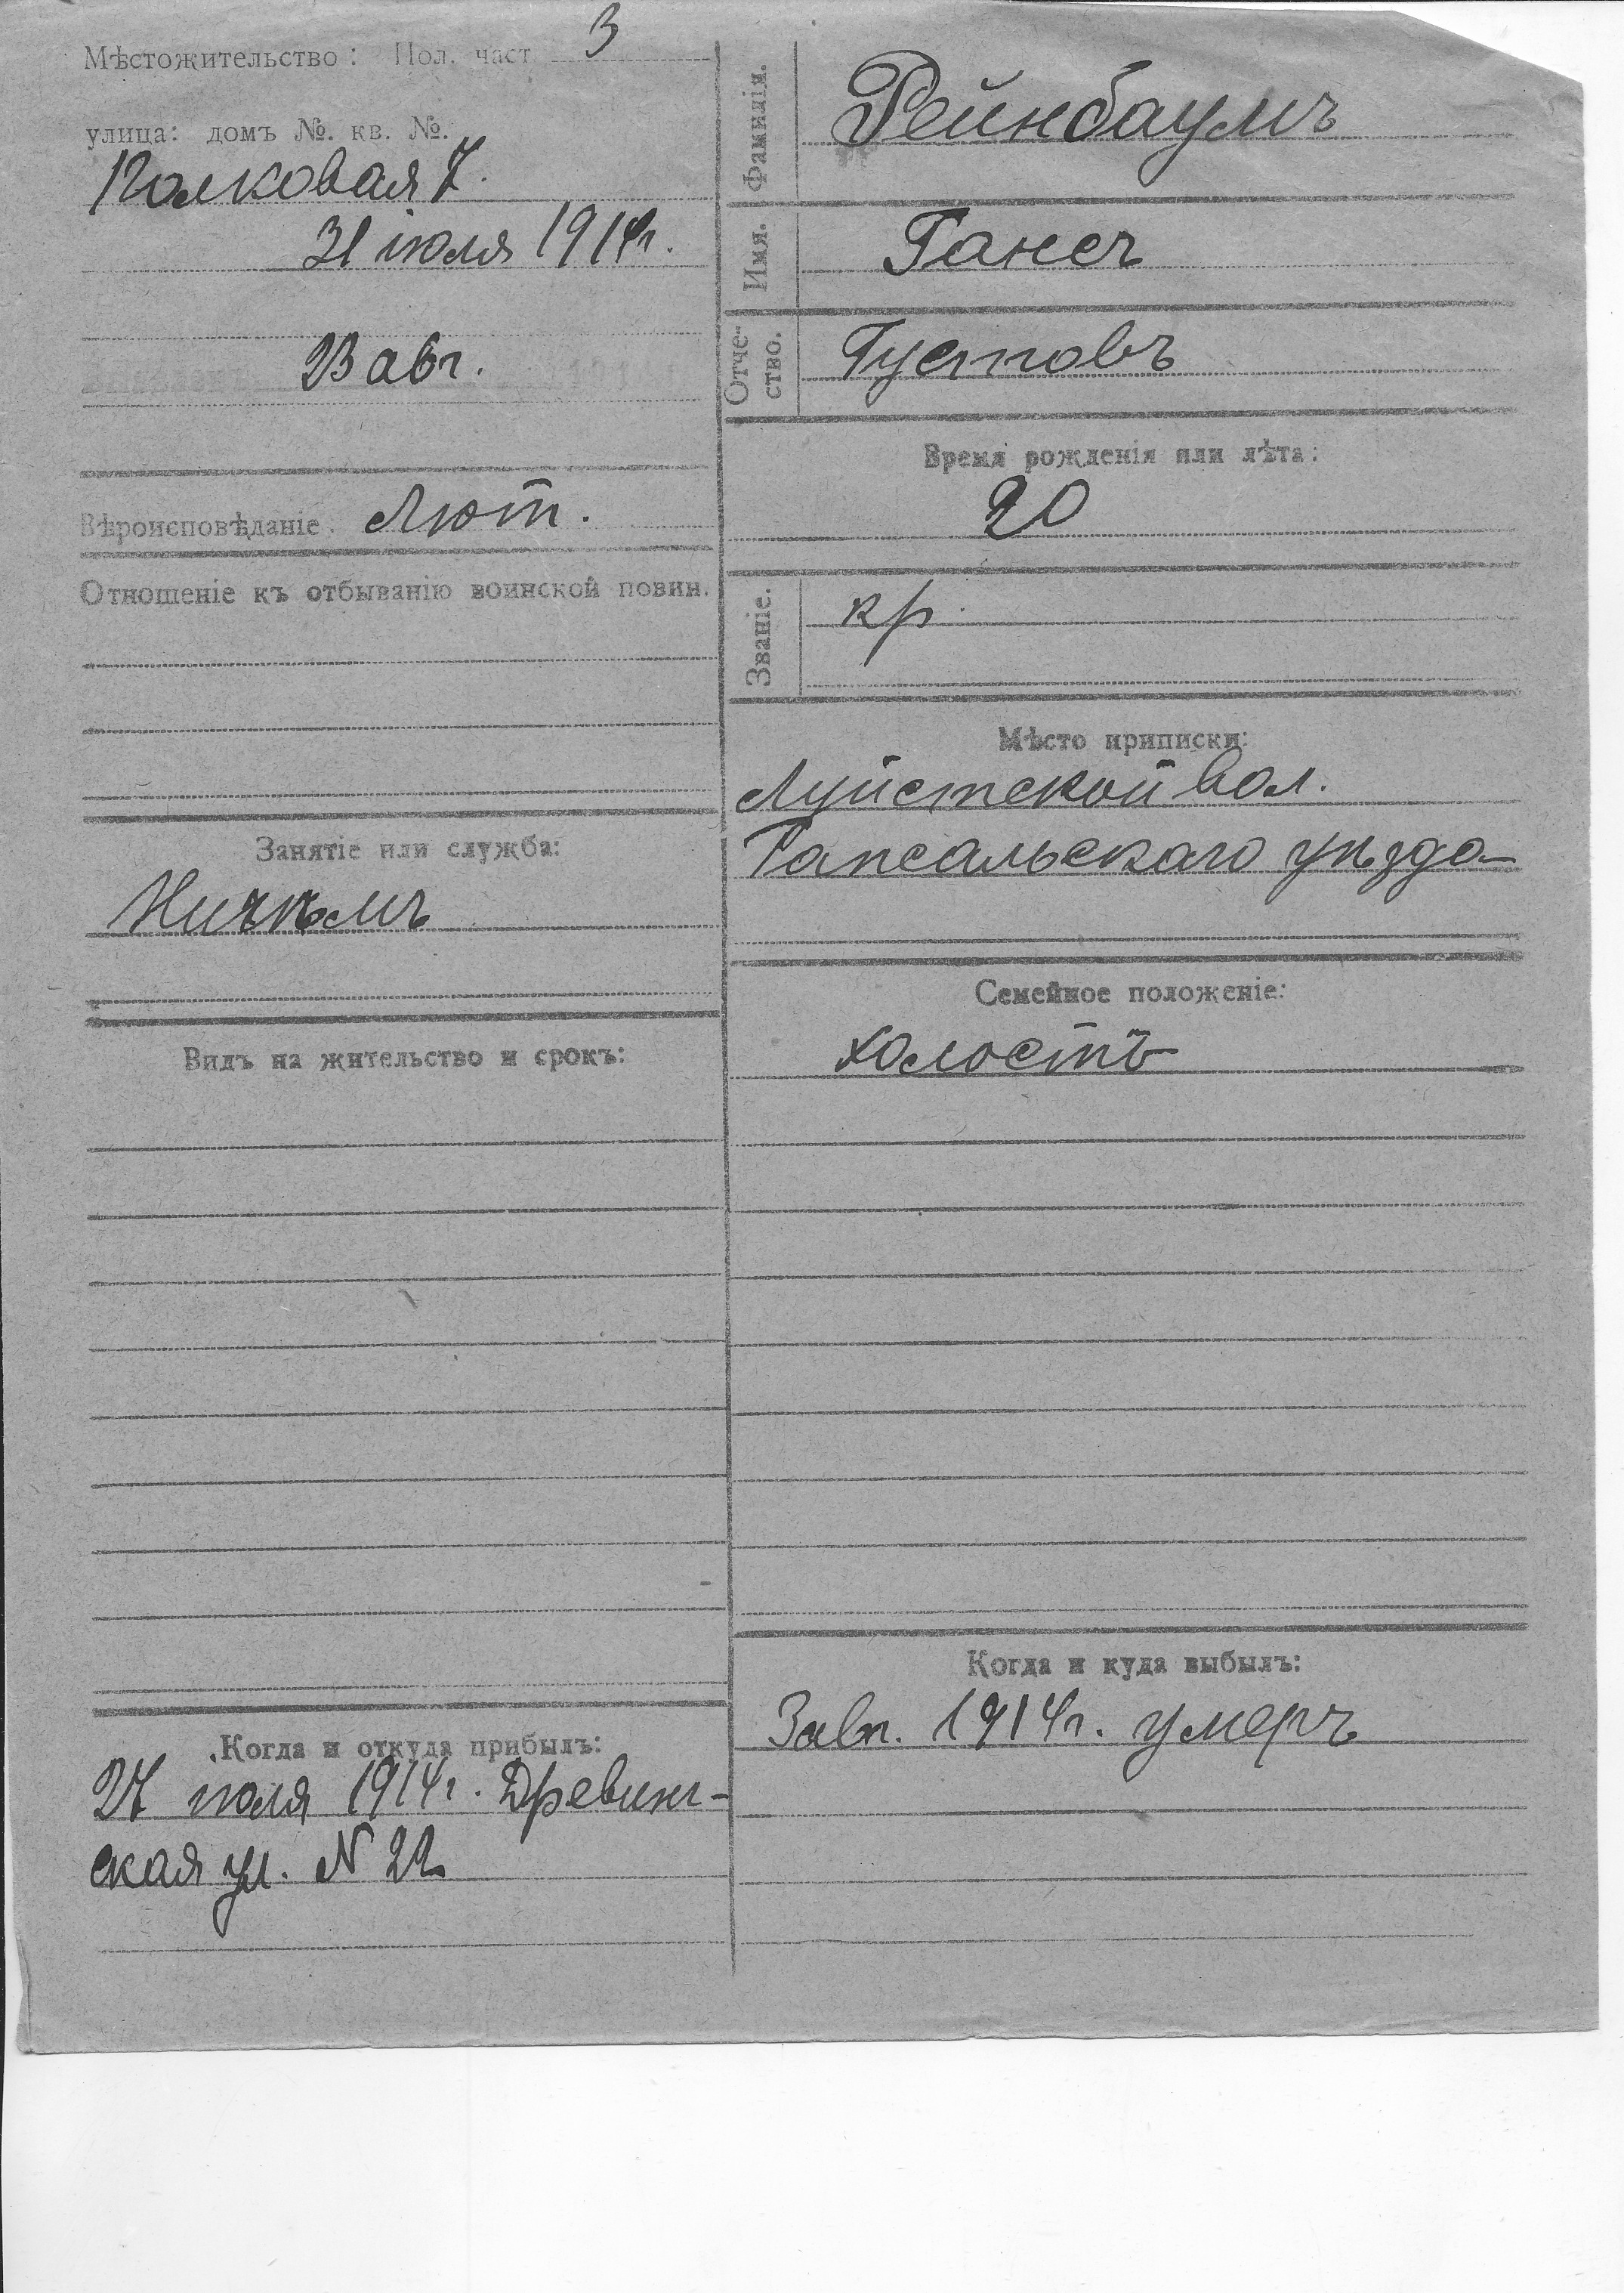 Мѣстожительство: Пол. част 3
улица: домъ №. кв. №.
Полковая 7.
31 іюля 1914г.
23 авг.
Вѣроисповѣданіе. Лют.
Отношеніе къ отбыванію воинской повин.
Занятіе или служба:
Ничѣмъ
Видъ на жительство и срокъ:
Когда и откуда прибылъ:
27 іюля 1914г. Древинг-
ская ул. N 22
Фамилія. Рейнбаумъ
Имя. Гансъ
Отче-
ство. Густовъ
Время рожденія или лѣта:
20
Званіе. кр.
Мѣсто приписки:
Луйстской вол.
Гапсальскаго уѣзда
Семейное положеніе:
холостъ
Когда и куда выбылъ:
3 авг. 1914г. умеръ